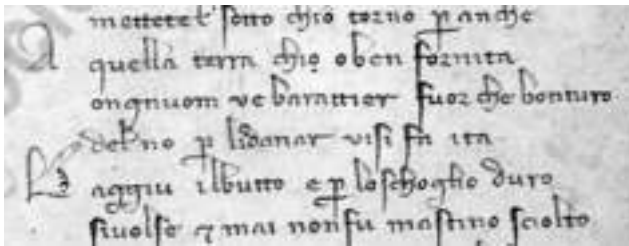 mettetel sotto chio torno p anche
A quella terra chio o ben fornita
ongnuom ve barattier fuor che bonturo
del no p li danar vi si fa ita
La ggiu il butto e p lo schoglio duro
si volse 7 mai non fu mastino sciolto